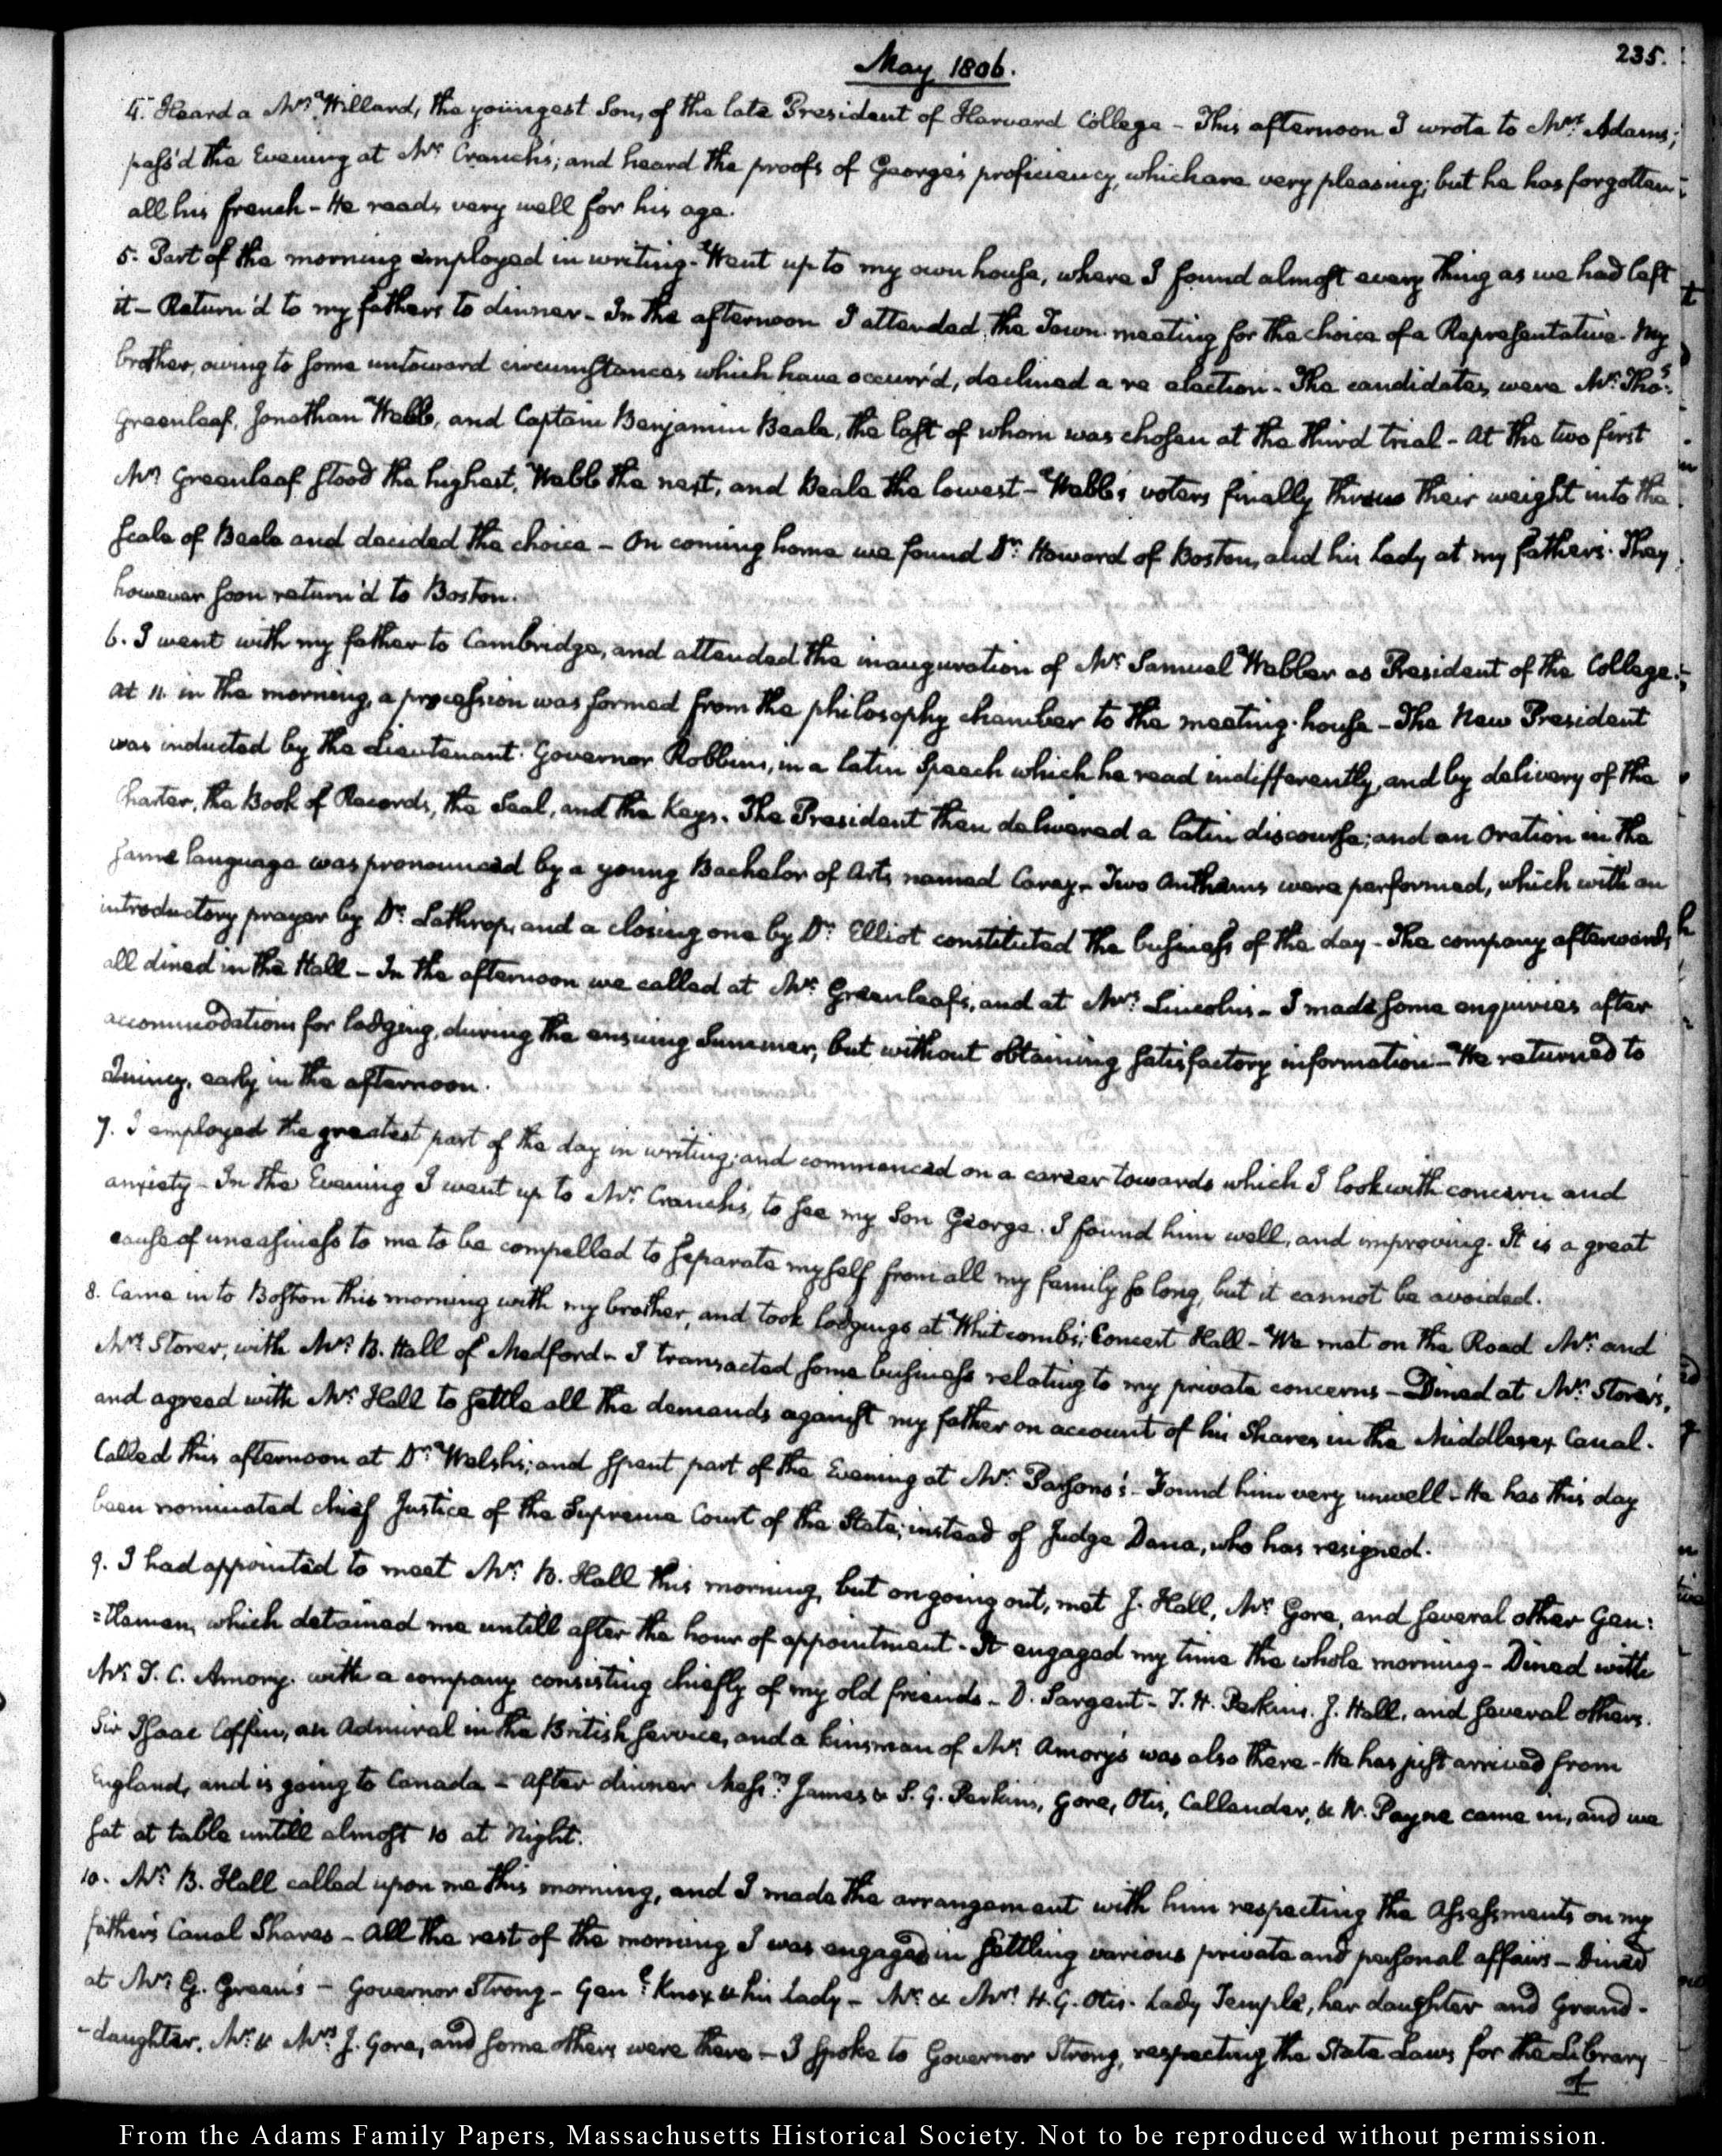 May 1806.
235.
4. Heard a Mr. Willard, the youngest Son, of the late President of Harvard College - This afternoon I wrote to Mrs. Adams;
pass'd the Evening at Mr. Cranch's; and heard the proofs of George's proficiency, which are very pleasing; but he has forgotten
all his french - He reads very well for his age.
5. Part of the morning employed in writing - Went up to my own house, where I found almost every thing as we had left
it - Return'd to my fathers to dinner - In the afternoon I attended the Town-meeting for the choice of a Representative. My
brother, owing to some untoward circumstances which have occurr'd, declined a re election - The candidates were Mr. Thos.
Greenleaf, Jonathan Webb, and Captain Benjamin Beale, the last of whom was chosen at the third trial - At the two first
Mr. Greenleaf stood the highest, Webb the next, and Beale the lowest - Webb's voters finally threw their weight into the
scale of Beale and decided the choice - On coming home we found Dr. Howard of Boston, and his Lady at my fathers. They
however soon return'd to Boston.
6. I went with my father to Cambridge, and attended the inauguration of Mr. Samuel Webber as President of the College.
At 11. in the morning, a procession was formed from the philosophy chamber to the meeting-house - The New President
was inducted by the Lieutenant-Governor Robbins, in a latin Speech which he read indifferently, and by delivery of the
Charter, the Book of Records, the Seal, and the Keys. The President then delivered a latin discourse; and an Oration in the
same language was pronounced by a young Bachelor of Arts named Carey - Two Anthems were performed, which with an
introductory prayer by Dr. Lathrop, and a closing one by Dr. Elliot constituted the business of the day - The company afterwards
all dined in the Hall - In the afternoon we called at Mr. Greenleaf's, and at Mrs. Lincoln's - I made some enquiries after
accommodations for lodging, during the ensuing Summer, but without obtaining satisfactory information - We returned to
Quincy, early in the afternoon.
7. I employed the greatest part of the day in writing; and commenced on a career towards which I look with concern and
anxiety - In the Evening I went up to Mr. Cranch's, to see my Son George. I found him well, and improving. It is a great
cause of uneasiness to me to be compelled to separate myself from all my family so long, but it cannot be avoided.
8. Came in to Boston this morning with my brother, and took lodgings at Whitcomb's; Concert Hall - We met on the Road Mr. and
Mrs. Storer, with Mr. B. Hall of Medford - I transacted some business relating to my private concerns - Dined at Mr. Storer's,
and agreed with Mr. Hall to settle all the demands against my father on account of his Shares in the Middlesex Canal.
Called this afternoon at Dr. Welsh's; and spent part of the Evening at Mr. Parsons's - Found him very unwell - He has this day
been nominated chief Justice of the Supreme Court of the State; instead of Judge Dana, who has resigned.
9. I had appointed to meet Mr. B. Hall this morning, but on going out, met J. Hall, Mr. Gore, and several other Gen:
=tlemen, which detained me untill after the hour of appointment - It engaged my time the whole morning - Dined with
Mr. T. C. Amory. with a company consisting chiefly of my old friends - D. Sargent - T. H. Perkins. J. Hall, and several others.
Sir Isaac Coffin, an Admiral in the British service, and a kinsman of Mr. Amory's was also there - He has just arrived from
England, and is going to Canada - After dinner Messrs. James & S. G. Perkins, Gore, Otis, Callender, & W. Payne came in, and we
sat at table untill almost 10 at Night.
10. Mr. B. Hall called upon me this morning, and I made the arrangement with him respecting the Assessments on my
father's Canal Shares - All the rest of the morning I was engaged in settling various private and personal affairs - Dined
at Mr. G. Green's - Governor Strong - Genl. Knox & his Lady - Mr. & Mrs. H. G. Otis. Lady Temple, her daughter and Grand-
-daughter. Mr. & Mrs. J. Gore, and some others were there - I spoke to Governor Strong, respecting the State Laws for the Library
of
From the Adams Family Papers, Massachusetts Historical Society. Not to be reproduced without permission.